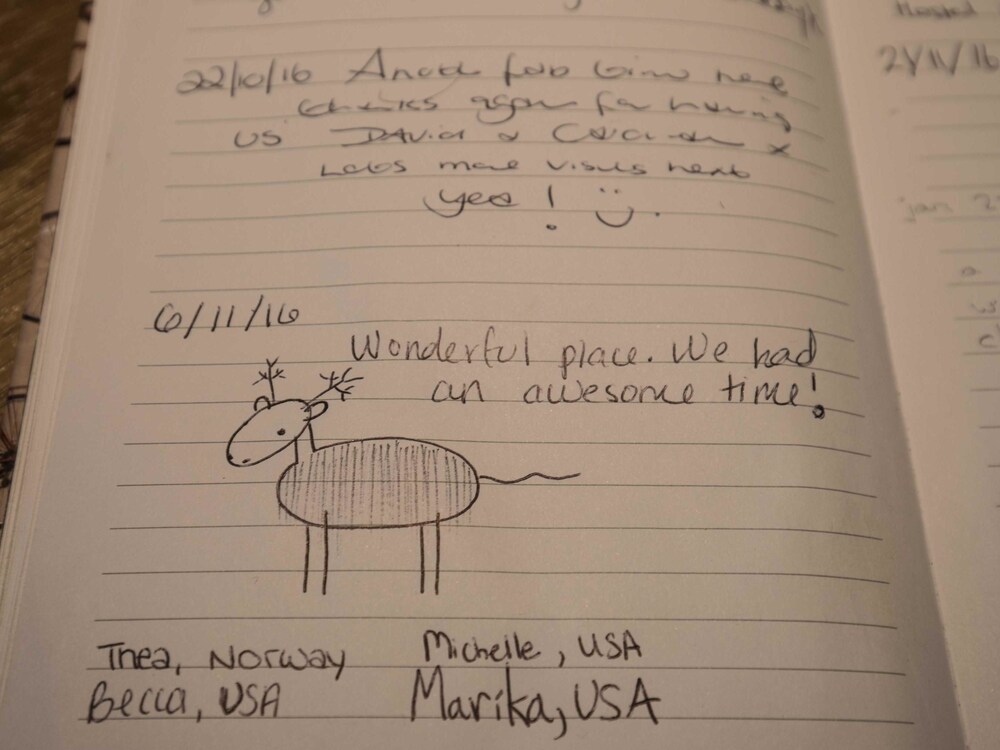 22/10/16 Another fab time here
thanks again for having
US DAVID & x
Lots more visits next
year! :)
6/11/16
Wonderful place. We had
an awesome time!
Thea, NORWAY
Michelle, USA
Becca, USA
Marika, USA
Hosted
21/11/16
jan